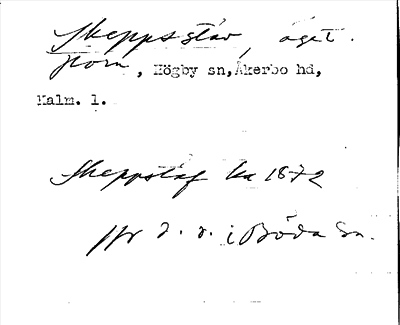 Skeppsstav, äget.
Horn, Högby sn, Åkerbo hd,
Kalm. l.
Skeppstaf ka 1872
i Böda sn.